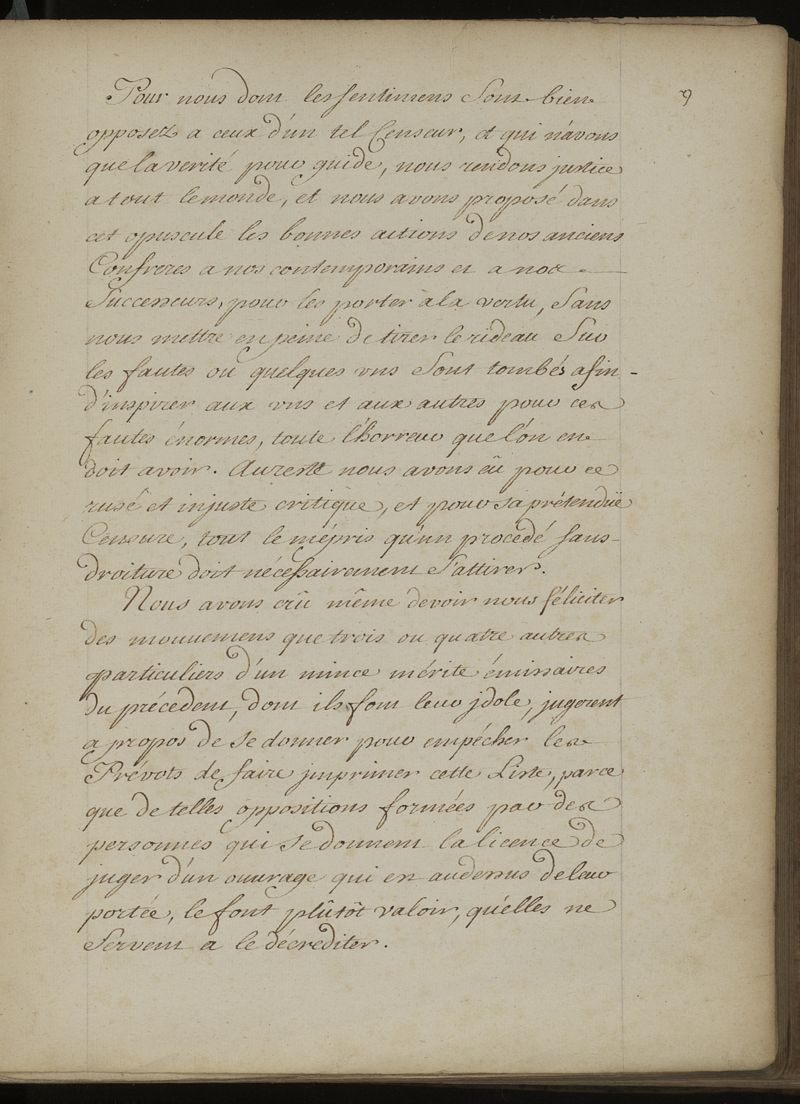 9
Pour nous dont les sentimens sont bien
opposez a ceux d'un tel Censeur, et qui n'avons
que la verité pour guide, nous rendons justice
a tout le monde, et nous avons proposé dans
cet opuscule les bonnes actions de nos anciens
Confreres a nos contemporains et a nos
Successeurs, pour les porter à la vertu, Sans
nous mettre en peine de tirer le rideau Sur
les fautes ou quelques uns Sont tombés afin
d'inspirer aux uns et aux autres pour ces
fautes énormes, toute l'horreur que l'on en
doit avoir. Au reste nous avons eû pour ce
rusé et injuste critique, et pour sa prétenduë
Censure, tout le mépris qu'un procedé sans
droiture doit nécessairement s'attirer.
Nous avons crû même devoir nous féliciter
des mouuemens que trois ou quatre autres
particuliers d'un mince mérite émissaires
du précedent, dont ils font leur jdole, jugerent
a propos de se donner pour empécher les
Prévots de faire jmprimer cette Liste, parce
que de telles oppositions formées par des
personnes qui se donnent la licence de
juger d'un ouvrage qui est au dessus de leur
portée, le font plûtôt valoir, qu'elles ne
Servent a le décrediter.